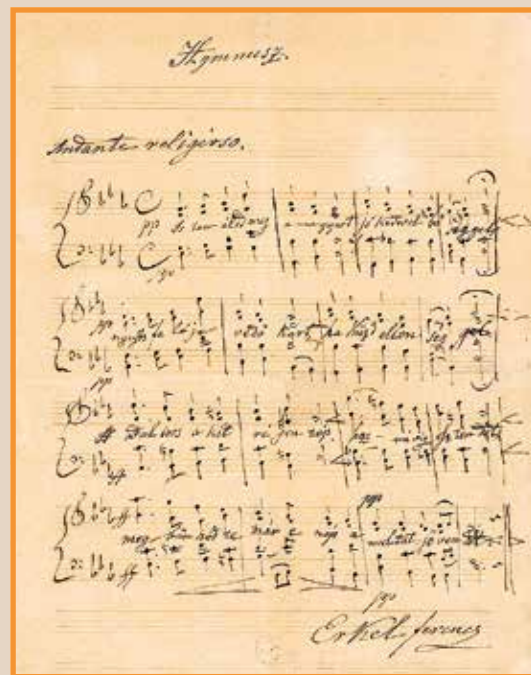 Hymnusz.
Andante religioso.
pp Is ten áldd meg a magyart jó kedvvel bő séggel
pp
pp nyujts fe léje védő kart, ha küzd ellen ség gel
pp
ff Bal sors a kit ré gen tép,
ff
ff meg bün hőd te már e nép a multat jö ven
ff
pp
Erkel Ferencz